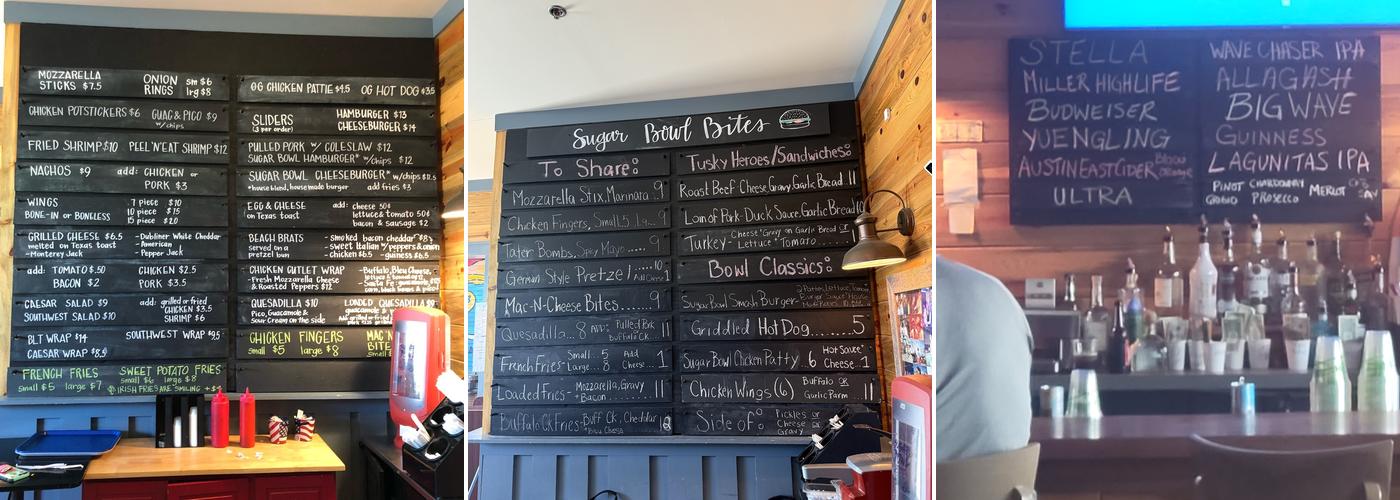 MOZZARELLA
STICKS $7.5
ONION
RINGS
sm $6
lrg $8
CHICKEN POTSTICKERS $6
GUAC & PICO $9
w/chips
FRIED SHRIMP $10
PEEL'N'EAT SHRIMP $12
NACHOS $9
add: CHICKEN or
PORK $3
WINGS
BONE-IN or BONELESS
7 piece $10
10 piece $15
15 piece $20
GRILLED CHEESE $6.5
melted on Texas toast
-Monterey Jack
-Dubliner White Cheddar
-American
-Pepper Jack
add: TOMATO $.50
BACON $2
CHICKEN $2.5
PORK $3.5
CAESAR SALAD $9
SOUTHWEST SALAD $10
add: grilled or fried
CHICKEN $3.5
SHRIMP $6
BLT WRAP $14
SOUTHWEST WRAP $9.5
CAESAR WRAP $8.5
FRENCH FRIES
small $5 large $7
SWEET POTATO FRIES
small $6 large $8
IRISH FRIES ARE SMILING
OG CHICKEN PATTIE $4.5
OG HOT DOG $3.5
SLIDERS
(3 per order)
HAMBURGER $13
CHEESEBURGER $14
PULLED PORK w/ COLESLAW $12
SUGAR BOWL HAMBURGER* w/chips $12
SUGAR BOWL CHEESEBURGER* w/chips
*house blend, house made burger add fries $3
EGG & CHEESE
on Texas toast
add: cheese 50¢
lettuce & tomato 50¢
bacon & sausage $2
BEACH BRATS
served on a
pretzel bun
-smoked bacon cheddar $8
-sweet Italian w/peppers & onion
-chicken $6.5 -guiness $6.5
CHICKEN CUTLET WRAP
-Fresh Mozzarella Cheese
& Roasted Peppers $12
-Buffalo, Bleu Cheese,
QUESADILLA $10
Pico, Guacamole &
Sour Cream on the side
LOADED QUESADILLA
CHICKEN FINGERS
small $5 large $8
MAC N
BITE
small
Sugar Bowl Bites
To Share:
Mozzarella Stix, Marinara 9
Chicken Fingers, Small 5
Tater Bombs, Spicy Mayo..... 9
German Style Pretzel.....10
Add Cheese 1
Mac-N-Cheese Bites..... 9
Quesadilla... 8 ADD: Pulled Pork
Buffalo CK. 11
French Fries - Small.. 5 Add
Large.. 8 Cheese... 1
Loaded Fries - Mozzarella, Gravy
+Bacon 11
Buffalo CK Fries - Buff Ck, Cheddar
12
Tusky Heroes/Sandwiches:
Roast Beef Cheese, Gravy, Garlic Bread 11
Loin of Pork-Duck Sauce, Garlic Bread
Turkey - Cheese Gravy on Garlic Bread OR
Lettuce Tomato
Bowl Classics:
Sugar Bowl Smash Burger-
Griddled Hot Dog........5
Sugar Bowl Chicken Patty.. 6 Hot Sauce
Cheese. 1
Chicken Wings (6) Buffalo OR
Garlic Parm 11
Side of: Pickles or
Cheese or
Gravy
STELLA
MILLER HIGHLIFE
BUDWEISER
YUENGLING
AUSTIN EAST CIDER
ULTRA
WAVE CHASER IPA
ALLAGASH
BIG WAVE
GUINNESS
LAGUNITAS IPA
PINOT GRIGIO
CHARDONNAY
PROSECCO
MERLOT